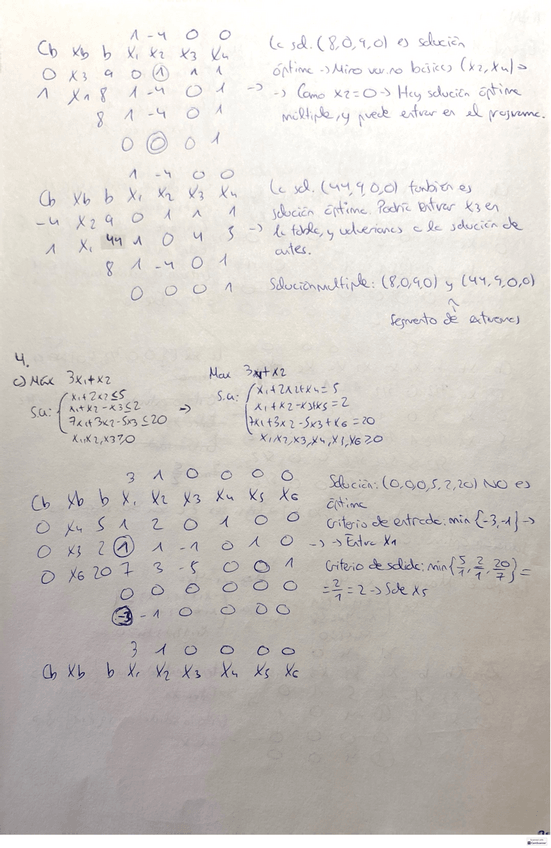 1 -4 0 0
Cb Xb b X1 X2 X3 X4
0 X3 9 0 1 1 1
1 X1 8 1 -4 0 1
8 1 -4 0 1
0 0 0 1
La sol. (8,0,9,0) es solución
óptima → Miro var. no básicas (x2,x4) →
→ Como x2=0 → Hay solución óptima
múltiple, y puede entrar en el programa.
1 -4 0 0
Cb Xb b X1 X2 X3 X4
-4 X2 9 0 1 1 1
1 X1 44 1 0 4 5
8 1 -4 0 1
0 0 0 1
La sol. (44,9,0,0) también es
solución óptima. Podría entrar X3 en
→ la tabla, y volveríamos a la solución de
antes.
Solución múltiple: (8,0,9,0) y (44,9,0,0)
Segmento de extremos
4.
c) Máx 3x1+x2
s.a: x1+2x2≤5
x1+x2-x3≤2
7x1+3x2-5x3≤20
x1,x2,x3≥0
→
Max 3x1+x2
s.a: x1+2x2+x4=5
x1+x2-x3+x5=2
7x1+3x2-5x3+x6=20
x1,x2,x3,x4,x5,x6≥0
3 1 0 0 0 0
Cb Xb b X1 X2 X3 X4 X5 X6
0 X4 5 1 2 0 1 0 0
0 X3 2 1 1 -1 0 1 0
0 X6 20 7 3 -5 0 0 1
0 0 0 0 0 0
-3 -1 0 0 0 0
Solución: (0,0,0,5,2,20) NO es
óptima
Criterio de entrada: min{-3,-1} →
→ → Entra X1
Criterio de salida: min{5/1, 2/1, 20/7} =
= 2/1 = 2 → Sale X5
3 1 0 0 0 0
Cb Xb b X1 X2 X3 X4 X5 X6